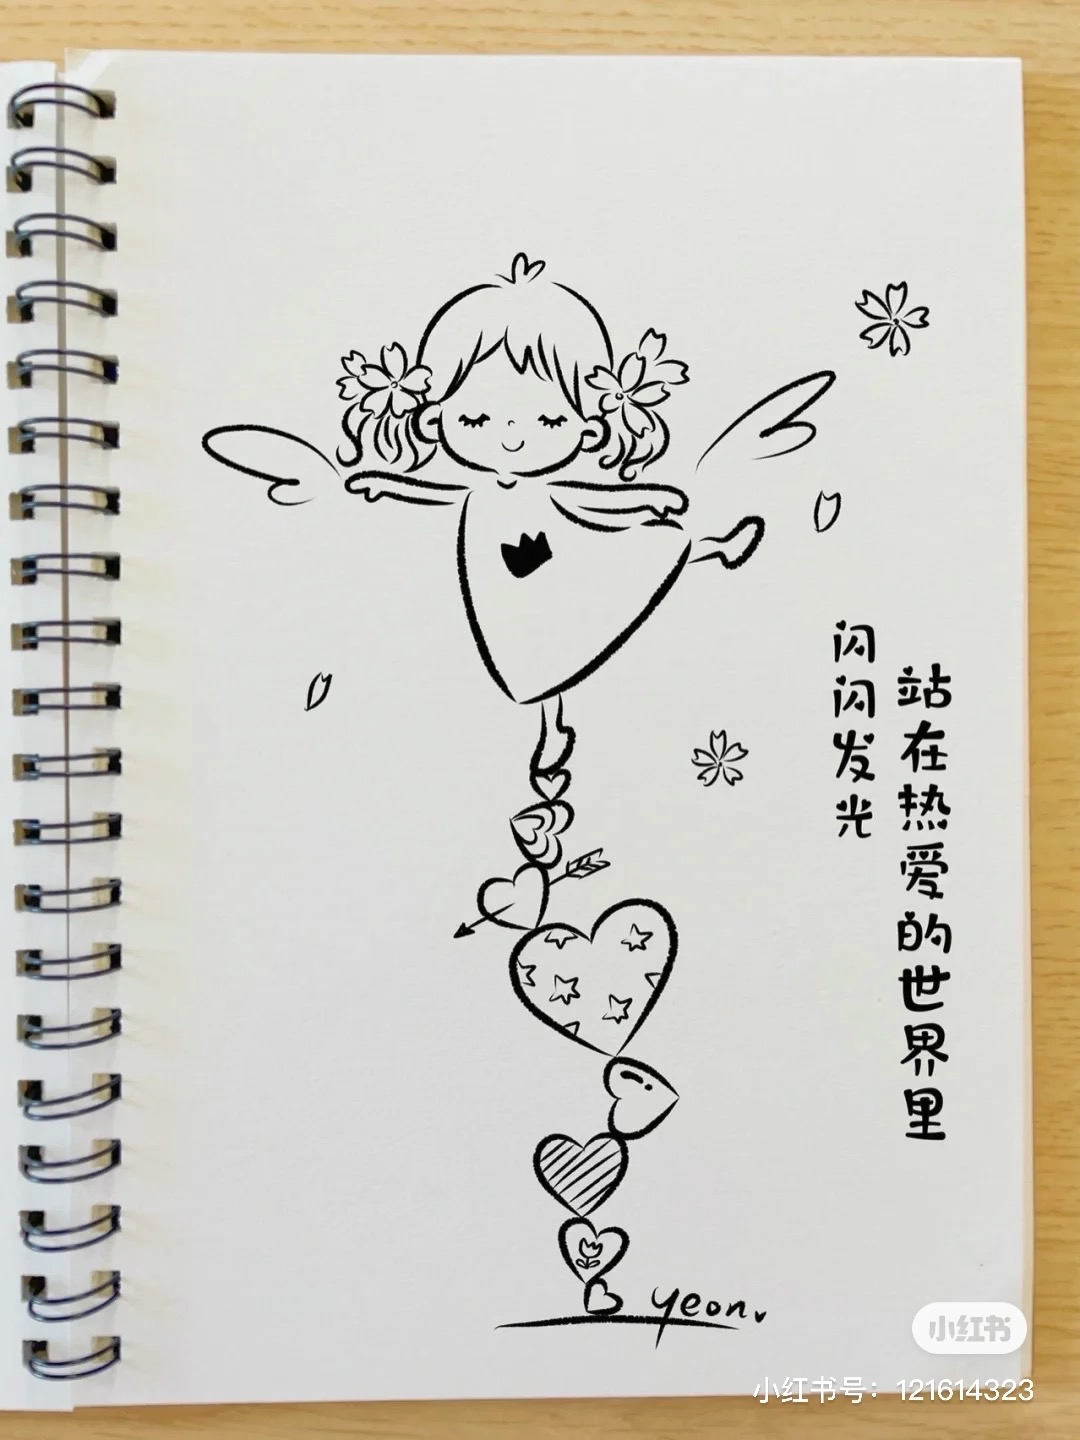 站在热爱的世界里
闪闪发光
yeon.
小红书
小红书号：121614323